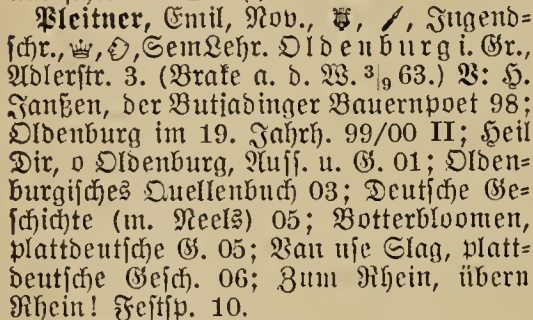 Pleitner, Emil, Nov., Jugend=
schr., SemLehr. Oldenburg i. Gr.,
Adlerstr. 3. (Brake a. d. W. 3/9 63.) V: H.
Janßen, der Butjadinger Bauernpoet 98;
Oldenburg im 19. Jahrh. 99/00 II; Heil
Dir, o Oldenburg, Auff. u. G. 01; Olden=
burgisches Quellenbuch 03; Deutsche Ge=
schichte (m. Neels) 05; Botterbloomen,
plattdeutsche G. 05; Van use Slag, platt=
deutsche Gesch. 06; Zum Rhein, übern
Rhein! Festsp. 10.